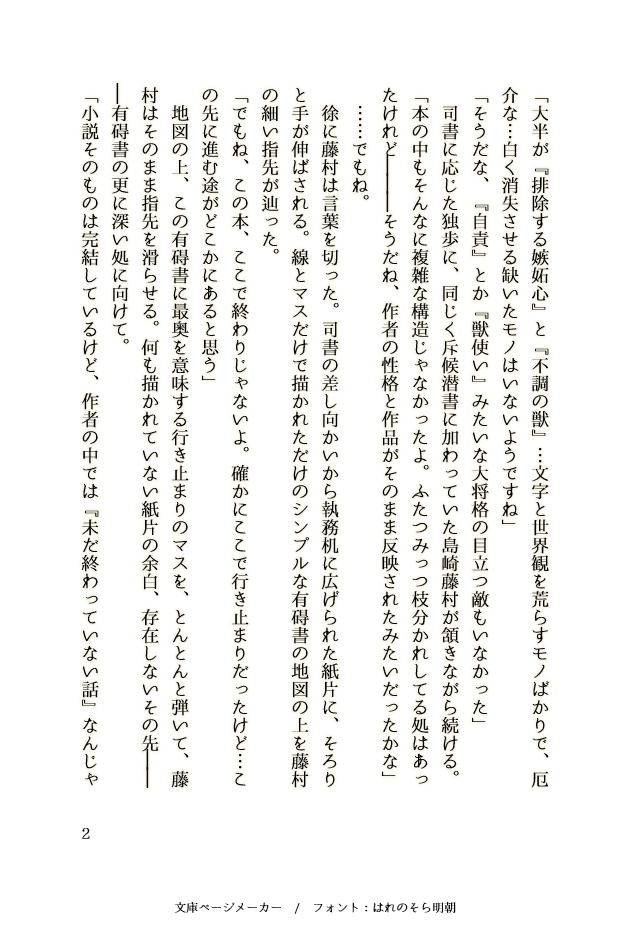 「大半が『排除する嫉妬心』と『不調の獣』…文字と世界観を荒らすモノばかりで、厄
介な…白く消失させる欠いたモノはいないようですね」
「そうだな、『自責』とか『獣使い』みたいな大将格の目立つ敵もいなかった」
　司書に応じた独歩に、同じく斥候潜書に加わっていた島崎藤村が頷きながら続ける。
「本の中もそんなに複雑な構造じゃなかったよ。ふたつみっつ枝分かれしてる処はあっ
たけれど――そうだね、作者の性格と作品がそのまま反映されたみたいだったかな」
　……でもね。
　徐に藤村は言葉を切った。司書の差し向かいから執務机に広げられた紙片に、そろり
と手が伸ばされる。線とマスだけで描かれただけのシンプルな有碍書の地図の上を藤村
の細い指先が辿った。
「でもね、この本、ここで終わりじゃないよ。確かにここで行き止まりだったけど…こ
の先に進む途がどこかにあると思う」
　地図の上、この有碍書に最奥を意味する行き止まりのマスを、とんとんと弾いて、藤
村はそのまま指先を滑らせる。何も描かれていない紙片の余白、存在しないその先――
―有碍書の更に深い処に向けて。
「小説そのものは完結しているけど、作者の中では『未だ終わっていない話』なんじゃ
2
文庫ページメーカー　/　フォント：はれのそら明朝